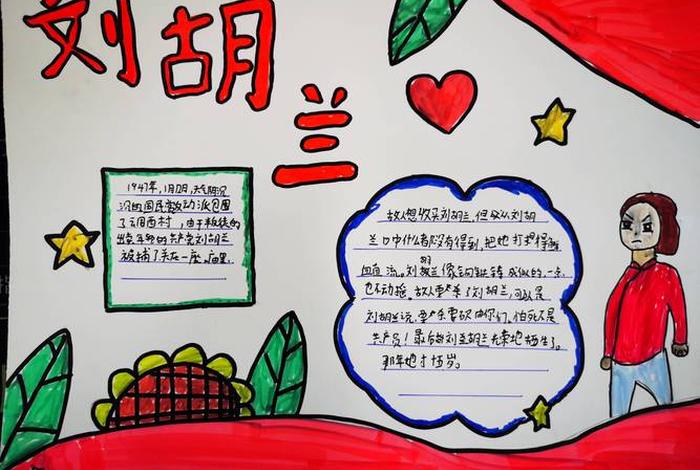 刘胡兰
1947年,1月12日,天气阴沉
沉的国民党反动派包围
了云周西村,由于叛徒的
出卖年轻的共产党刘胡兰
被捕了关在一座庙里.
敌人想收买刘胡兰,但是从刘胡
兰口中什么都没有得到,把她打得
血直流。刘胡兰像钢铁铸成似的,一点
也不动摇。敌人要杀了刘胡兰,可以是
刘胡兰说,要杀要砍由你们,怕死不是
共产员!最后刘胡兰光荣地牺牲了。
那年她才15岁。